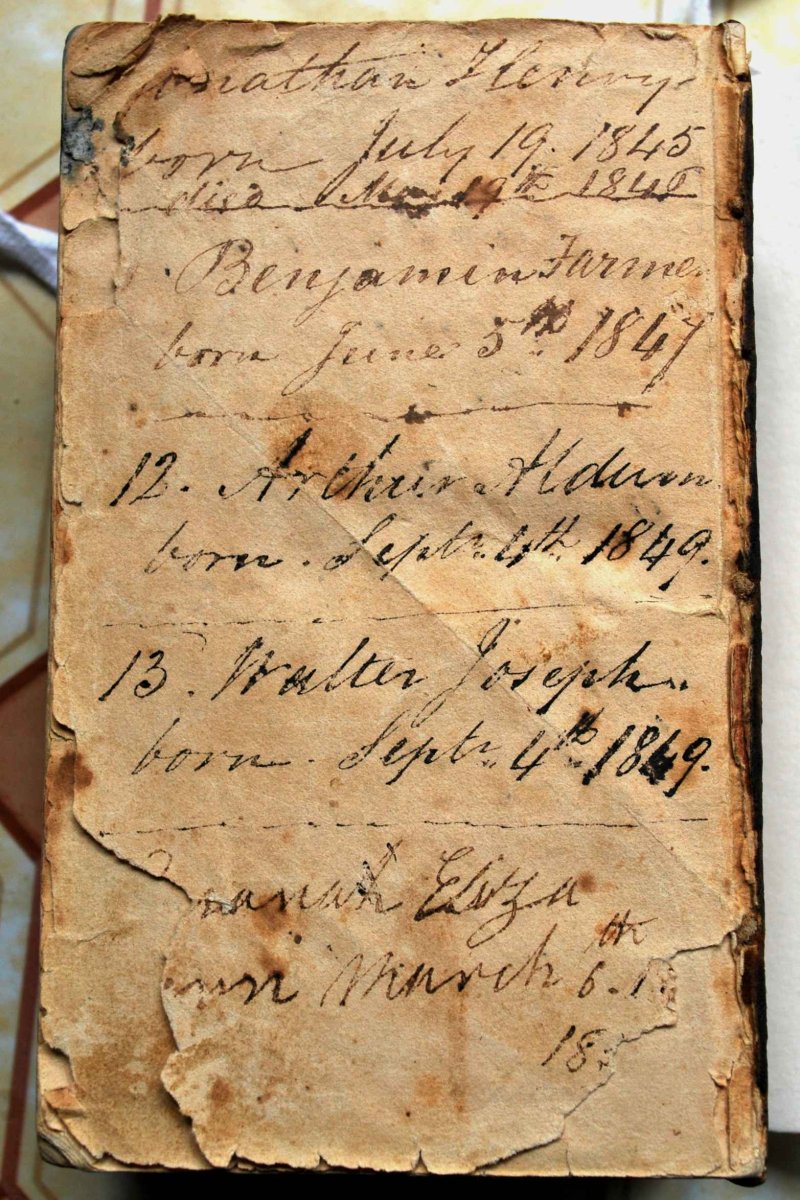 Jonathan Henry
born July 19. 1845
died 19th 1846
Benjamin Farmer
born June 5th 1847
12. Arthur
born. Septr. 4th 1849.
13. Walter Joseph.
born. Septr. 4th 1849.
Eliza
March 6th
18